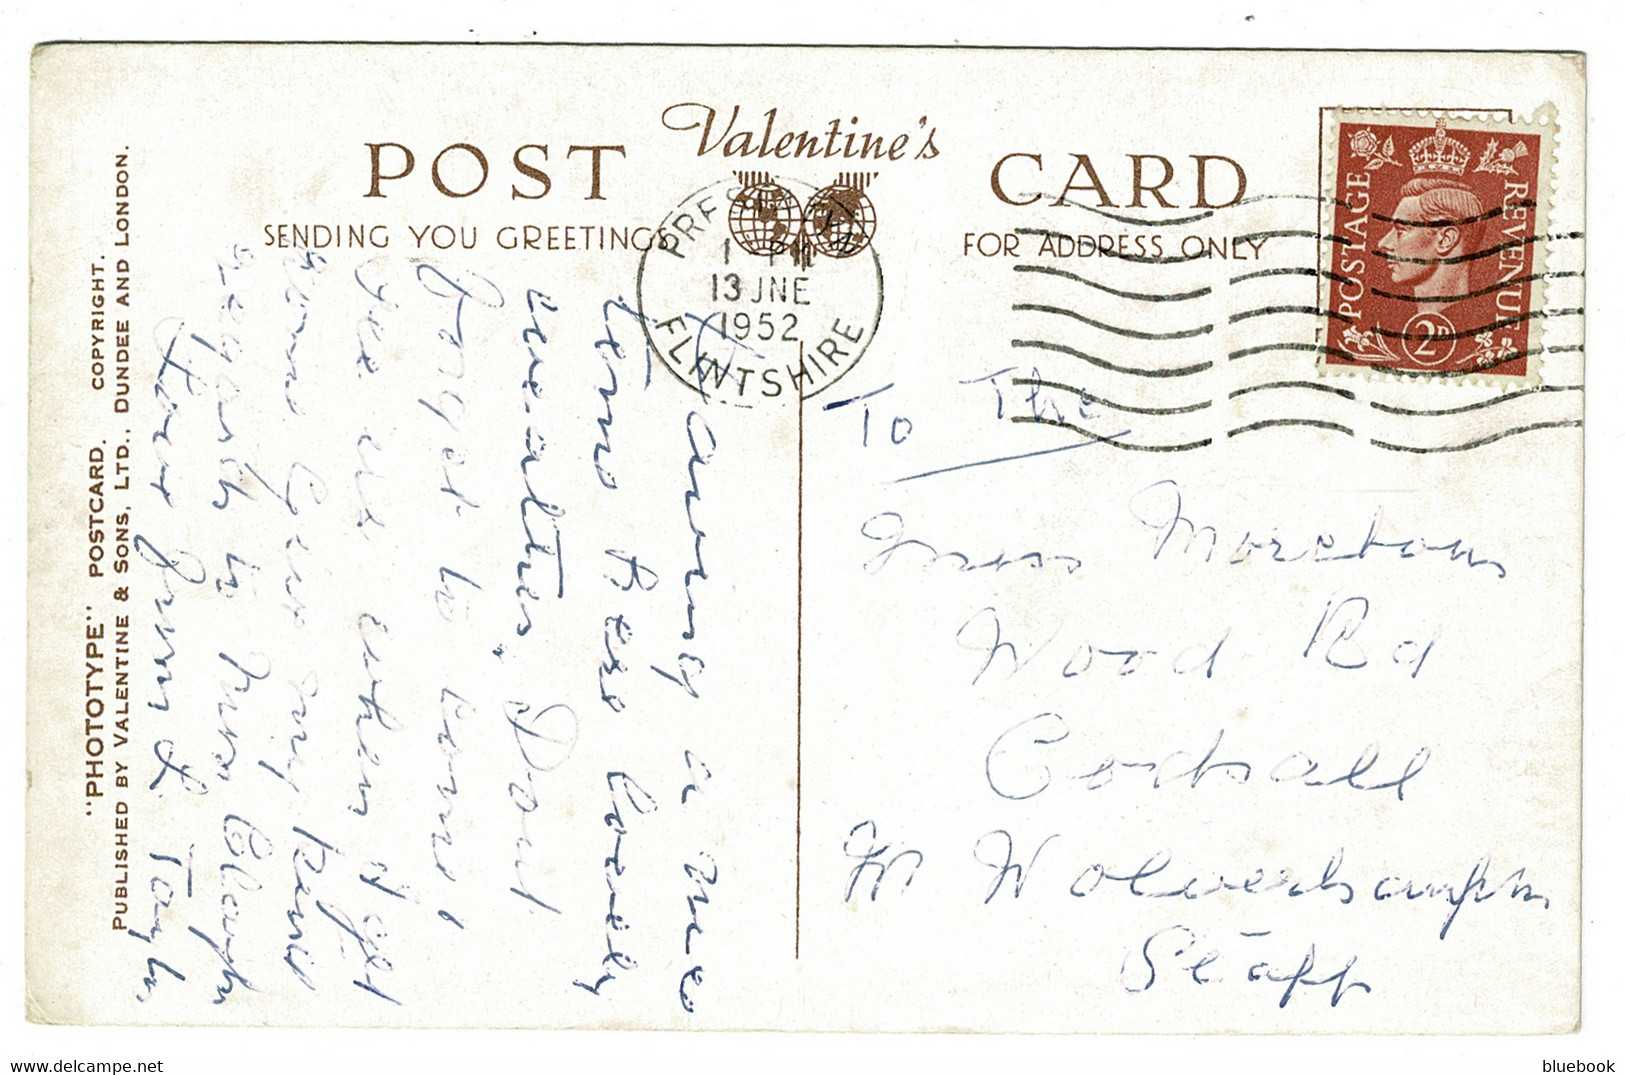 Valentine's
POST CARD
SENDING YOU GREETINGS
FOR ADDRESS ONLY
PRESTATYN
1 PM
13 JNE
1952
FLINTSHIRE
POSTAGE REVENUE
2D
"PHOTOTYPE" POSTCARD. COPYRIGHT.
PUBLISHED BY VALENTINE & SONS, LTD., DUNDEE AND LONDON.
Having a nice
time here lovely
weather. Dont
forget to come &
see us when I get
home Give my kind
regards to Mrs
Love from L Taylor
To The
Miss
Wood Rd
Codsall
Nr Wolverhampton
Staff
bluebook